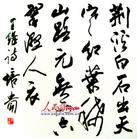 荆溪白石出天
寒红葉稀
山路元无雨空
翠湿人衣
王维诗